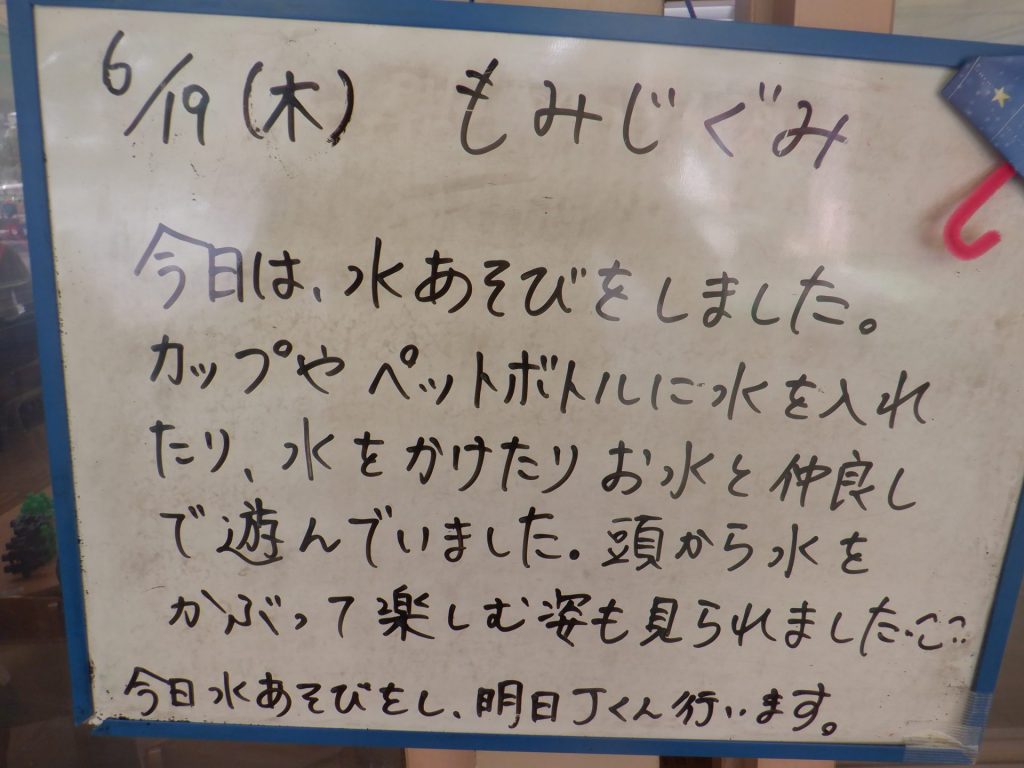 6/19(木) もみじぐみ
今日は、水あそびをしました。
カップや ペットボトルに水を入れ
たり、水をかけたり お水と仲良し
で遊んでいました。頭から水を
かぶって楽しむ姿も見られました
今日水あそびをし、明日Jくん行います。